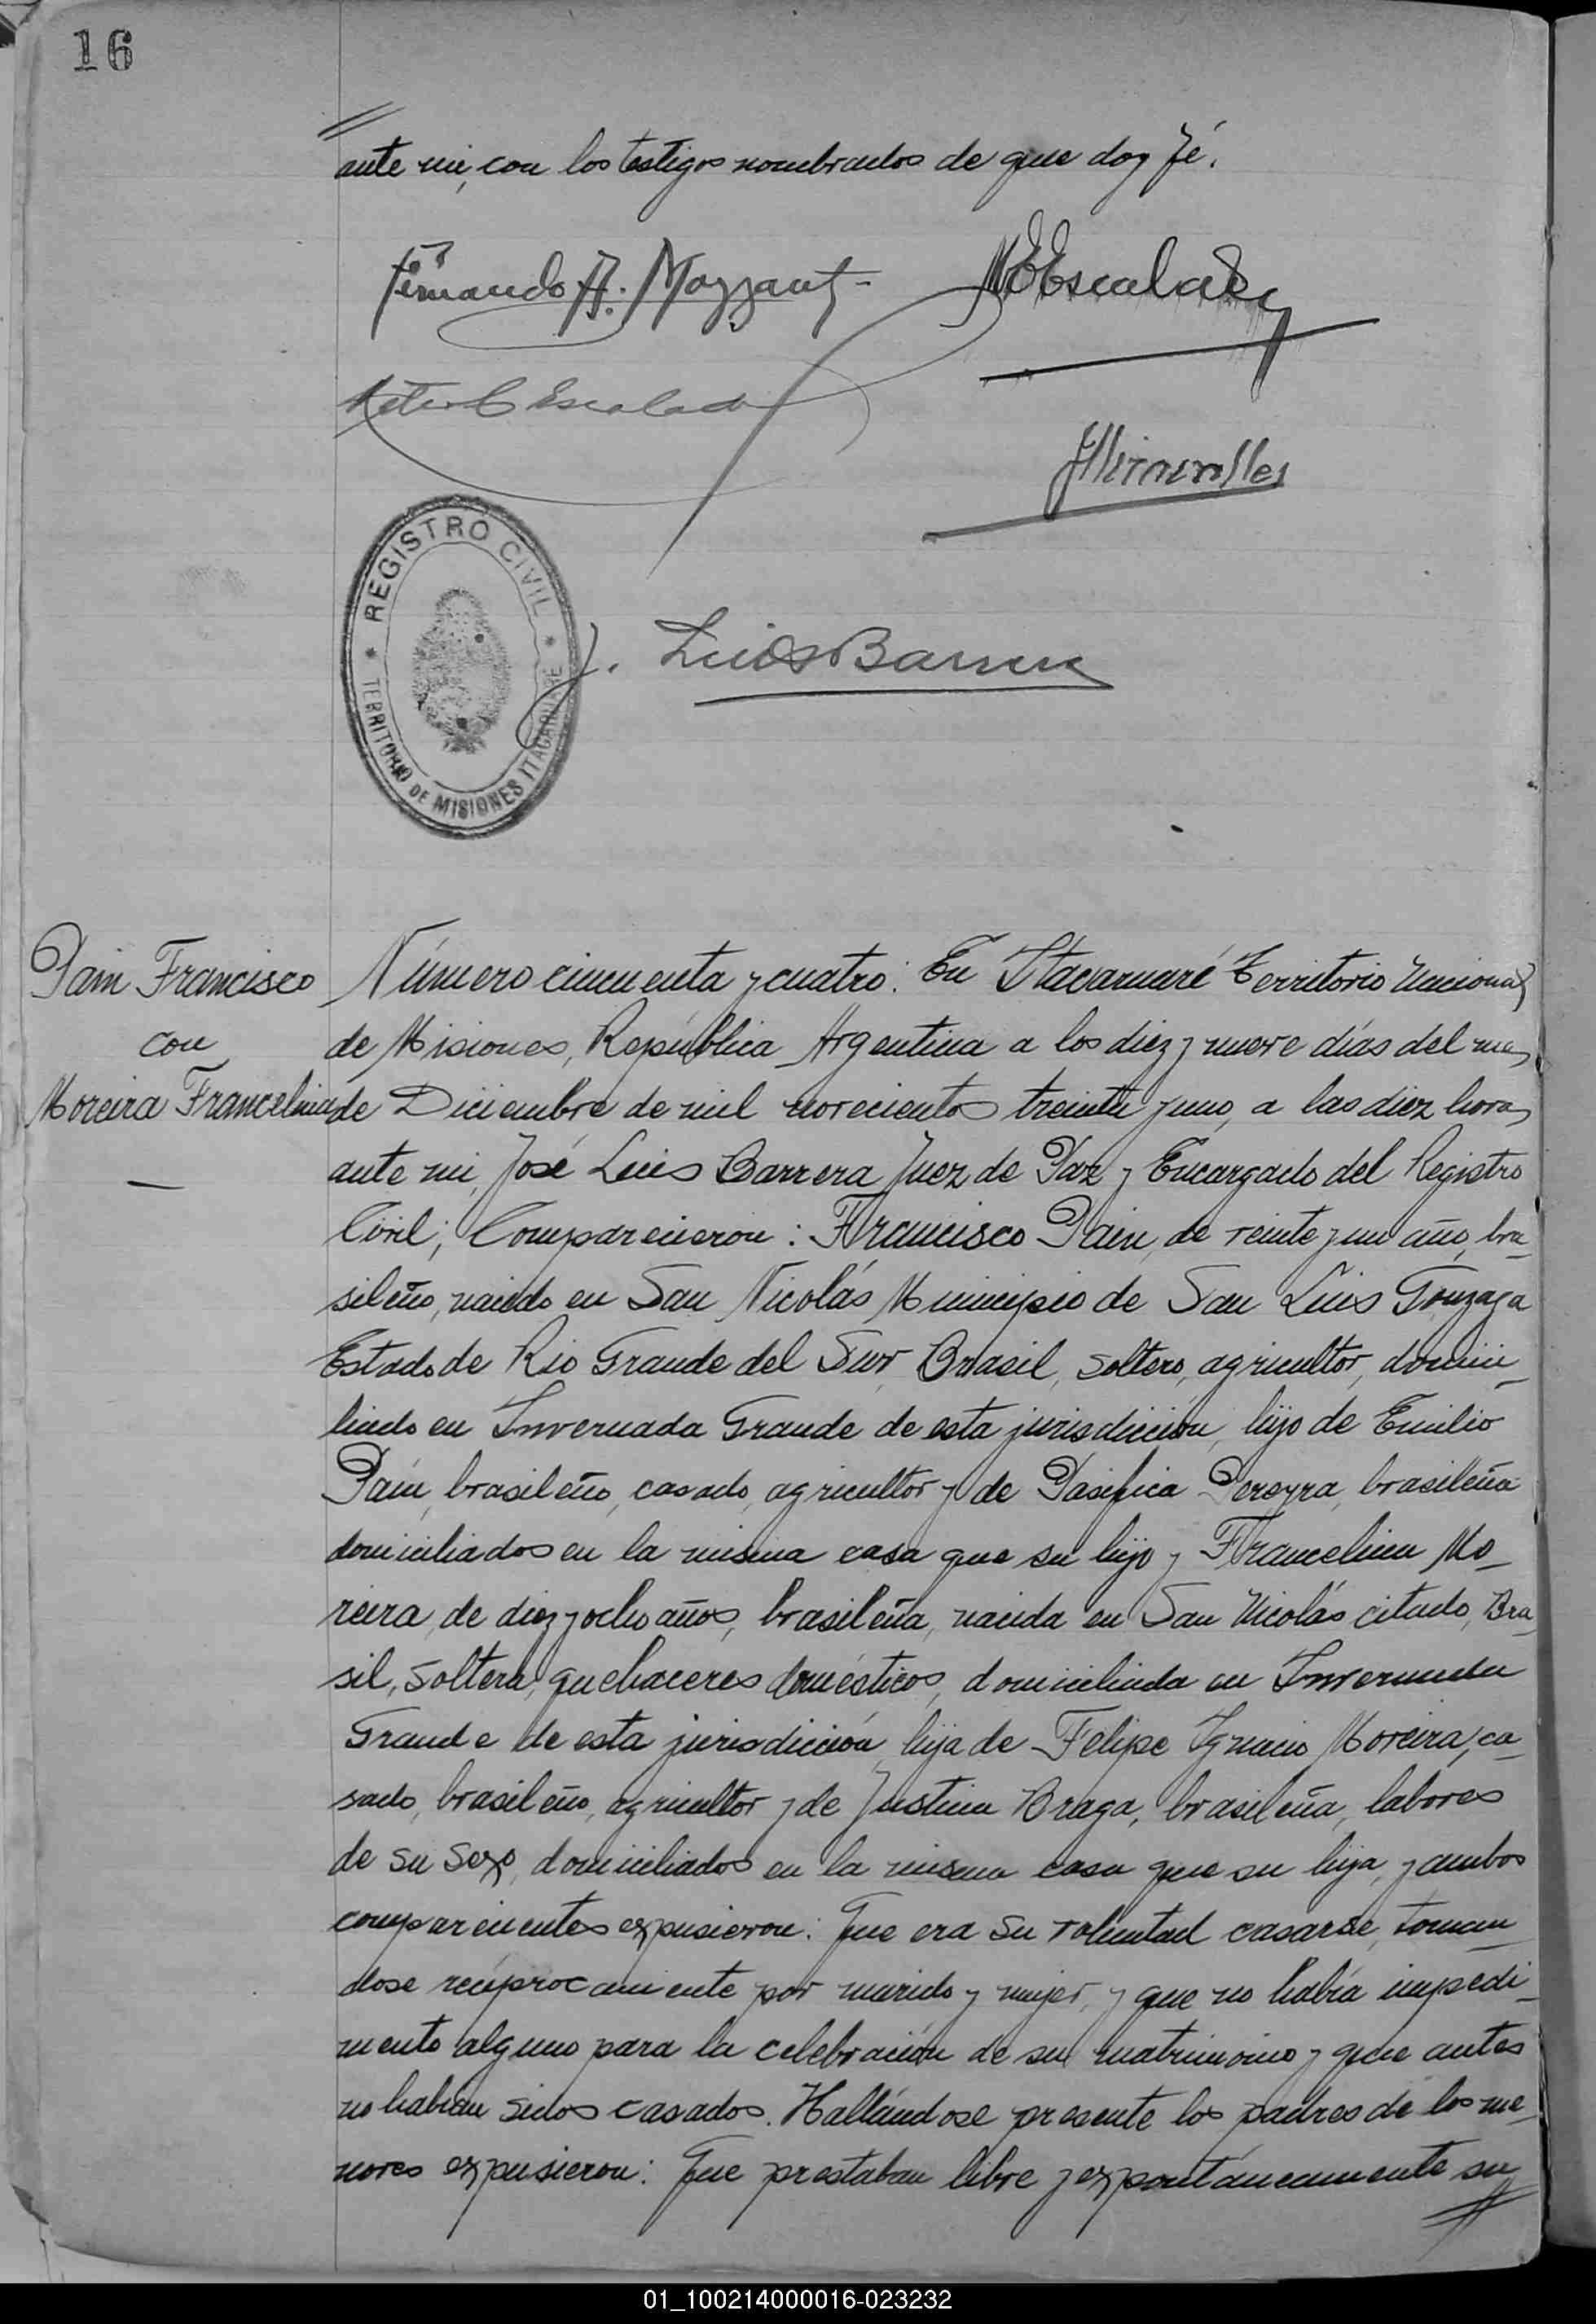 16
ante mi, con los testigos nombrados de que doy fé.
Fernando A. Mazzanti
Escalada
Escalada
REGISTRO CIVIL
TERRITORIO DE MISIONES ITACARUARE
J. Luis Barrera
Pain Francisco
con
Moreira Francelina
Número cincuenta y cuatro: En Itacaruaré Territorio Nacional
de Misiones, República Argentina a los diez y nueve días del mes
de Diciembre de mil novecientos treinta y uno, a las diez horas
ante mi, José Luis Barrera Juez de Paz y Encargado del Registro
Civil; Comparecieron: Francisco Pain, de veinte y un año, bra-
sileño, nacido en San Nicolás Municipio de San Luis Gonzaga
Estado de Rio Grande del Sur, Brasil, soltero, agricultor, domici-
liado en Invernada Grande de esta jurisdicción, hijo de Emilio
Pain, brasileño, casado, agricultor y de Pasifica Pereyra, brasileña
domiciliados en la misma casa que su hijo y Francelina Mo-
reira, de diez y ocho años, brasileña, nacida en San Nicolás citado, Bra-
sil, soltera, quehaceres domésticos, domiciliada en Invernada
Grande de esta jurisdicción, hija de Felipe Ygnacio Moreira, ca-
sado, brasileño, agricultor y de Justina Braga, brasileña, labores
de su sexo, domiciliados en la misma casa que su hija, y ambos
comparecientes expusieron: Que era su voluntad casarse, toman-
dose reciprocamiente por marido y mujer, y que no había impedi-
mento alguno para la celebración de su matrimonio y que antes
no habian sidos casados. Hallándose presente los padres de los me-
nores expusieron: Que prestaban libre y expontáneamente su
01_100214000016-023232